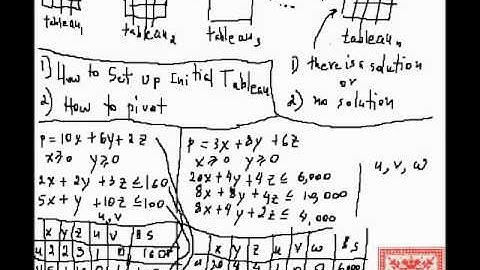 tableau₁ tableau₂ tableau₃ ... tableauₙ
1) How to Set up Initial Tableau
2) How to pivot
1) there is a solution
or
2) no solution
p = 10x + 6y + 2z
x ≥ 0 y ≥ 0
2x + 2y + 3z ≤ 160
5x + y + 10z ≤ 100
u, v
x y z u v BS
u 2 2 3 1 0 160
p = 3x + 8y + 6z
x ≥ 0 y ≥ 0
20x + 4y + 4z ≤ 6,000
8x + 8y + 4z ≤ 10,000
8x + 4y + 2z ≤ 4,000
u, v, w
x y z u v w BS
u 20 4 4 1 0 0 6000